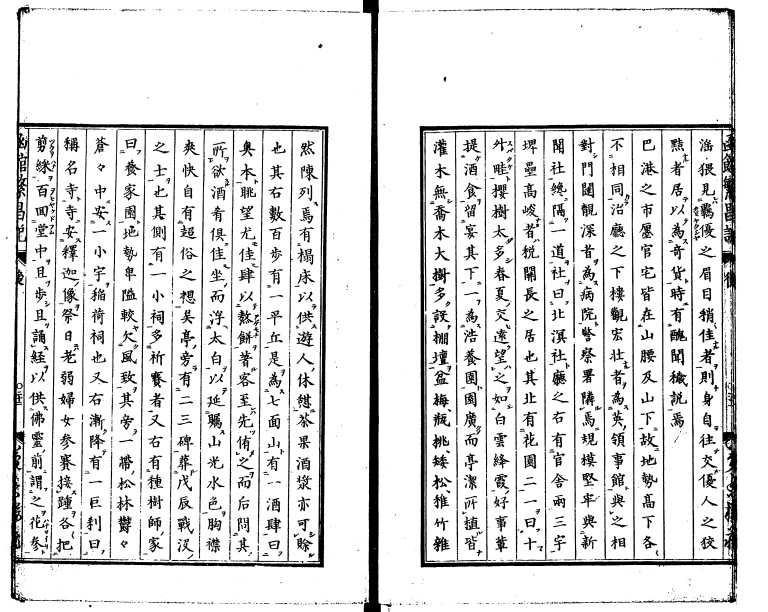 函館繁昌記 後
滛猥見羈優之眉目稍佳者則身自往交優人之狡
黠者居以為奇貨時有醜聞穢説焉
巴港之市廛官宅皆在山腰及山下故地勢高下各
不相同治廳之下樓觀宏壮者為英領事館與之相
對門閭靚深者為病院警察署隣焉規模堅牢與新
聞社総隔一道社曰北溟社廳之右有官舎兩三宇
堺壘高峻者税関長之居也其北有花園二一曰十
外畦櫻樹太多春夏交遠望之如白雲絳霞好事輩
提酒食留宴其下一為浩養園園廣而亭潔所植皆
灌木無喬木大樹多設棚壇盆梅瓶桃矮松稚竹雜
然陳列焉有榻床以供遊人休憩茶果酒漿亦可賒
也其右數百歩有一平丘是為七面山有一酒肆曰
奥本眺望尤佳肆以熬餅著客至先侑之而后問其
所欲酒肴倶佳坐而浮太白以延矚山光水色胸襟
爽快自有超俗之想矣亭旁有二三碑葬戊辰戰没
之士也其側有一小祠多祈賽者又右有種樹師家
曰養家園地勢卑隘較欠風致其旁一帶松林鬱々
蒼々中安一小宇稲荷祠也又右漸降有一巨刹曰
稱名寺寺安釋迦像祭日老弱婦女参賽接踵各把
剪綵百回堂中且歩且誦経以供佛靈前謂之花参
函館繁昌記 後